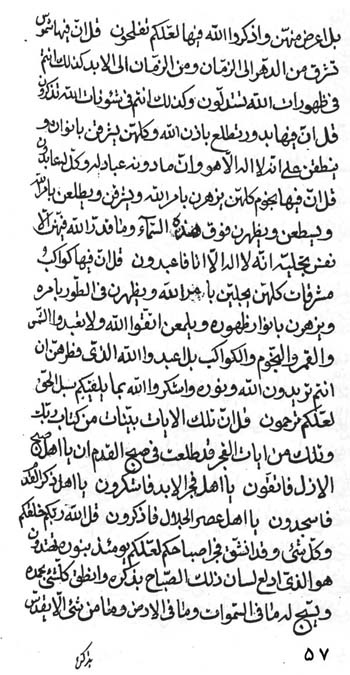 بل اعرض منهن واذكروا الله فيها لعلكم تفلحون قل ان فيها شموس
تشرق من الدهر الى الزمان ومن الزمان الى الابد كذلك انتم
فى ظهورات الله تستدلون وكذلك انتم فى شئونات الله تذكرون
قل ان فيها بدور تطلع باذن الله وكلهن يشرقن بانوار و
ينطقن على انه لا اله الا هو وان ما دونه عباد له وكل له عابدون
قل ان فيها نجوم كلهن يزهرن بامر الله ويشرقن ويطلعن بامر الله
ويسطعن ويظهرن فوق هذه السماء وما قدر الله فيهن الا
نفس تجليه انه لا اله الا انا فاعبدون قل ان فيها كواكب
مشرقات كلهن تجلين بامر الله ويظهرن فى الطور بامره
ويزهرن بانوار ظهوره ويلمعن اتقوا الله ولا تعبدوا الشمس
والقمر والنجوم والكواكب بل اعبدوا الله الذى فطرهن ان
انتم تريدون الله ونوره واشكروا الله بما يلقيكم سبل الحق
لعلكم ترحمون قل ان تلك الايات بينات من كتاب ربك
وتلك من ايات الفجر قد طلعت فى صبح القدم ان يا اهل صبح
الازل فاتقون يا اهل فجر الابد فاشكرون يا اهل ذكر القدم
فاسجدون يا اهل عصر الجلال فاذكرون قل الله ربكم خلقكم
وكل شئ وقد انشق فجر اصباحكم لعلكم يومئذ بنوره تهتدون
هو الذى ادلع لسان ذلك الصباح بذكره وانطق كلشئ بحمده
ويسبح له ما فى السموات وما فى الارض وما من شئ الا يقدس
٥٧
بذكره